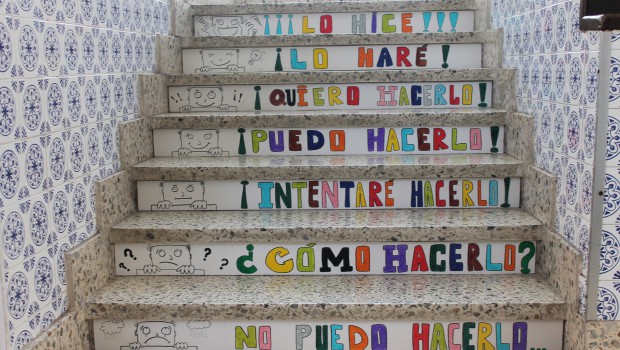 ¡¡¡LO HICE!!!
¡LO HARÉ!
¡QUIERO HACERLO!
¡PUEDO HACERLO!
¡INTENTARÉ HACERLO!
¿CÓMO HACERLO?
NO PUEDO HACERLO...